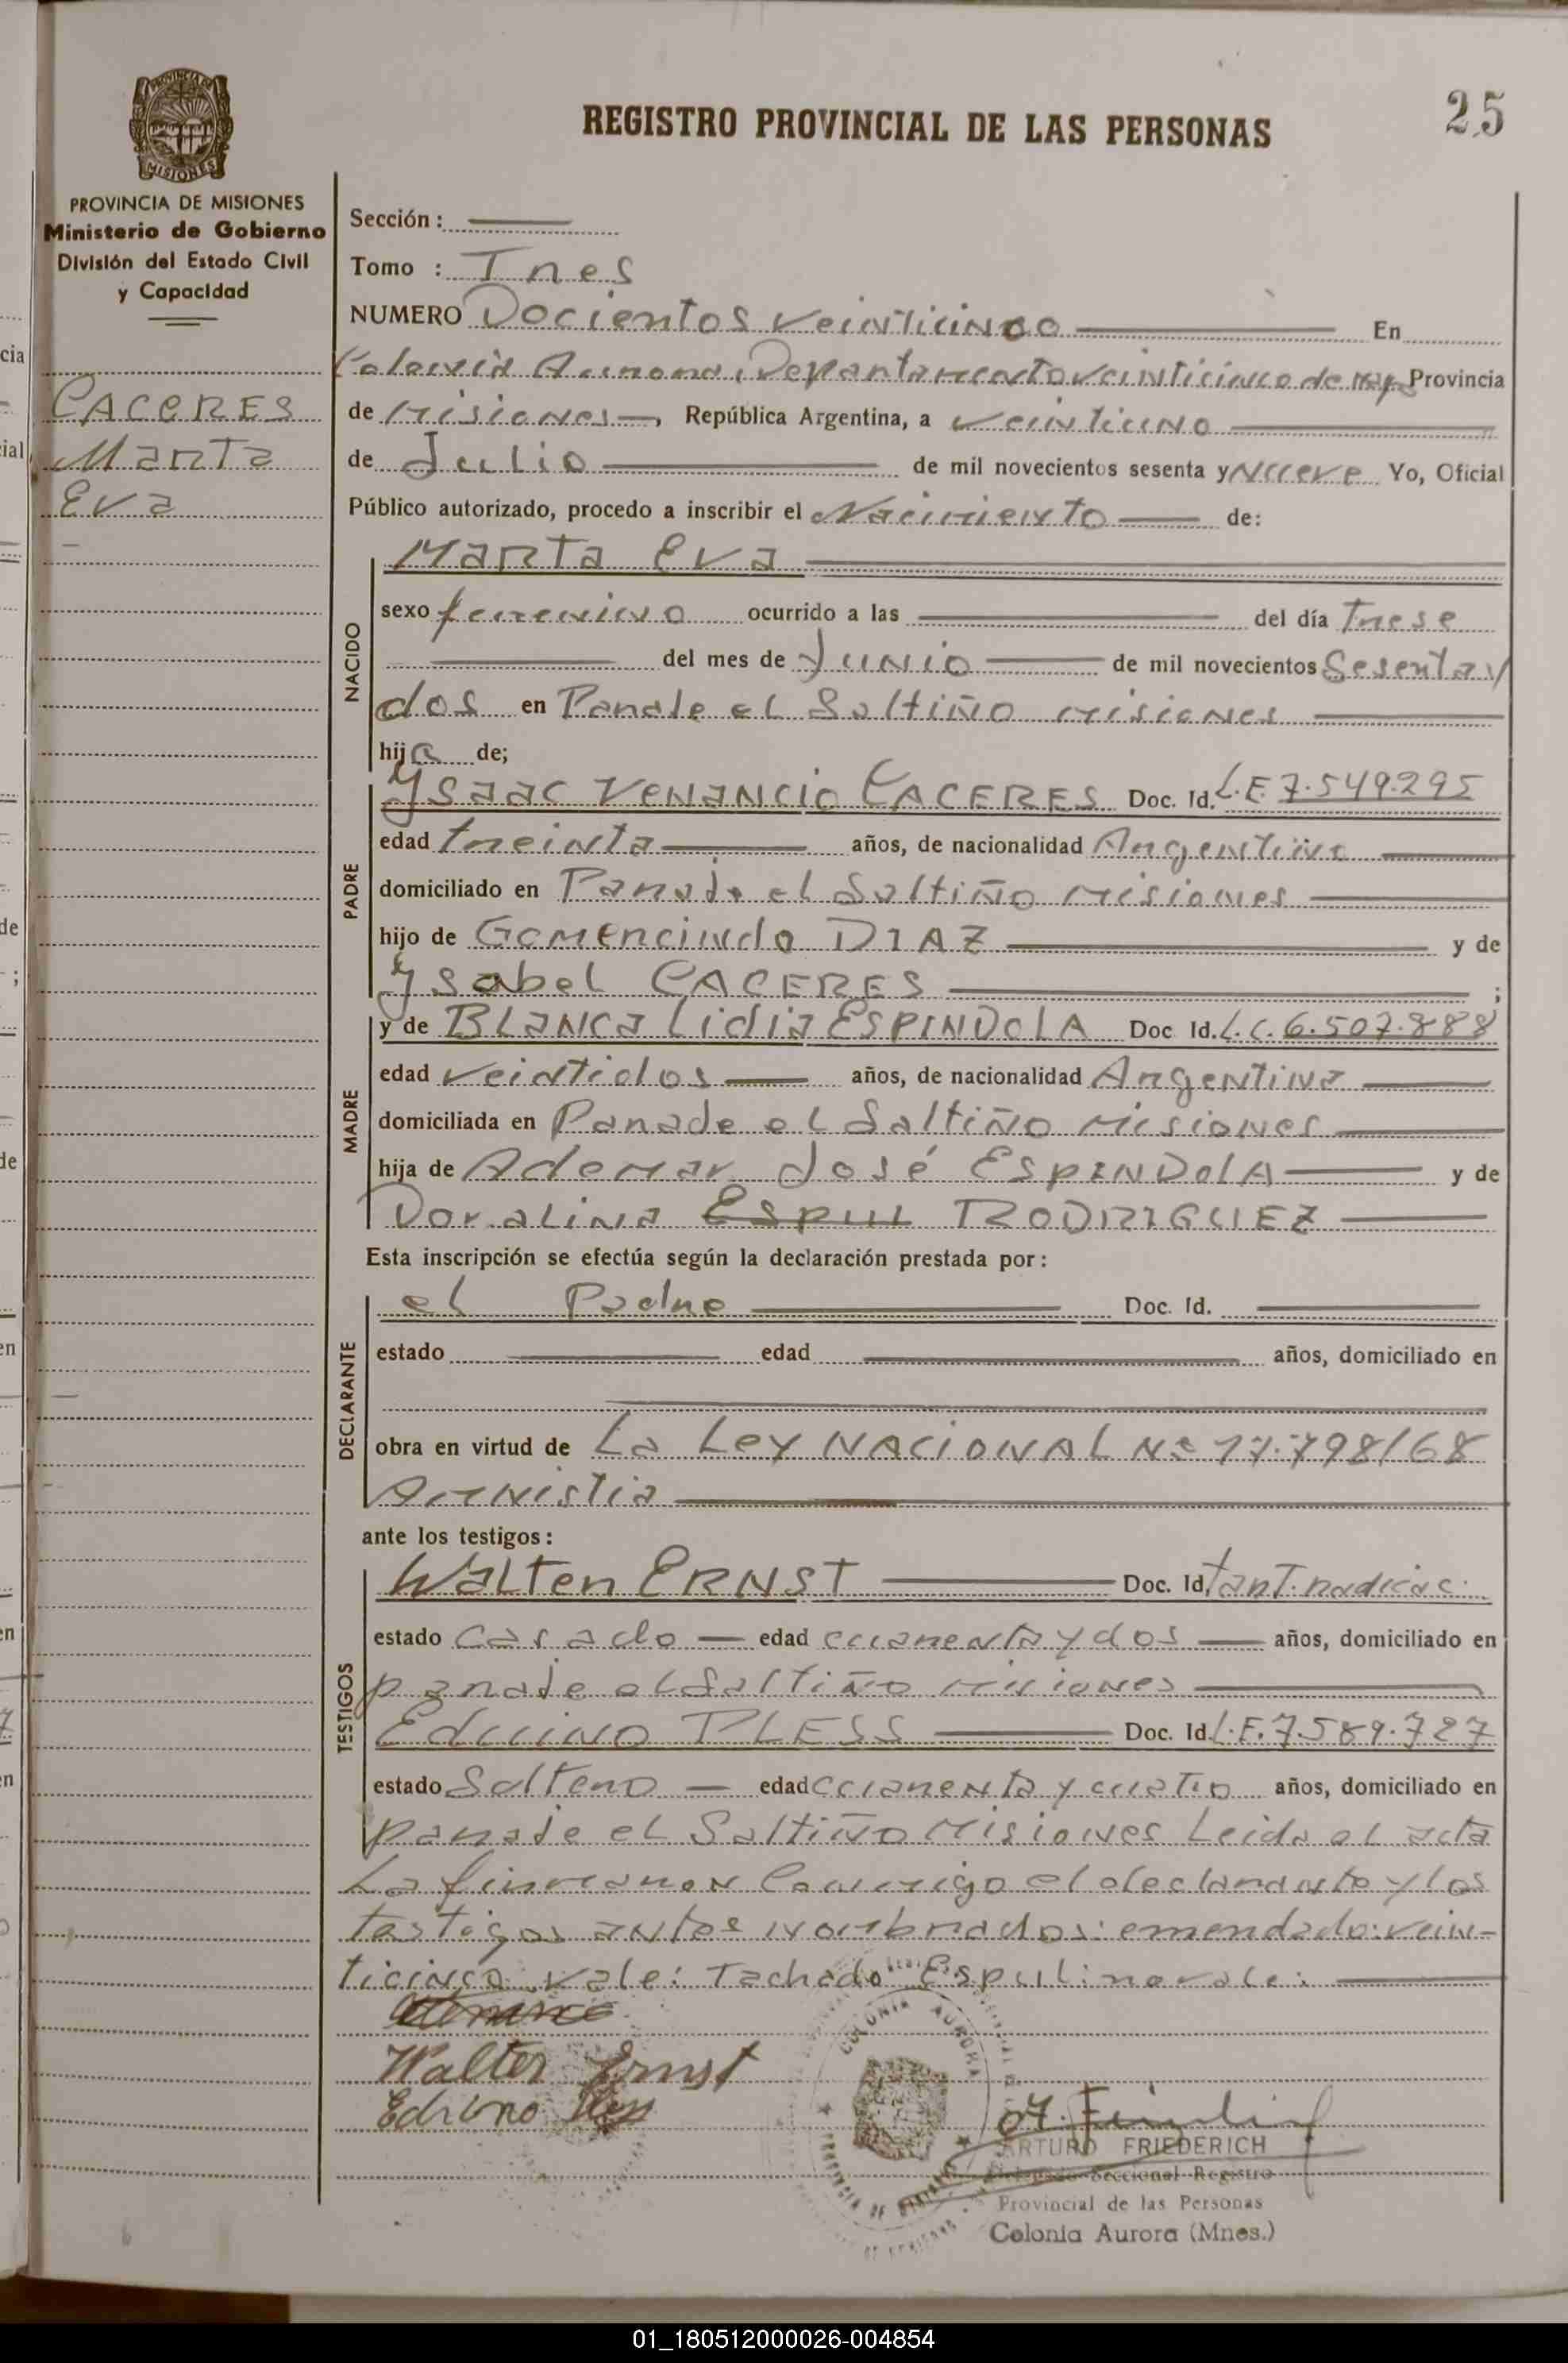 REGISTRO PROVINCIAL DE LAS PERSONAS
25
MISIONES
PROVINCIA DE MISIONES
Ministerio de Gobierno
División del Estado Civil
y Capacidad
CACERES
Marta
Eva
Sección:
Tomo : Tres
NUMERO Docientos veinticinco En
Colonia Aurora, Departamento veinticinco de mayo Provincia
de Misiones, República Argentina, a veintiuno
de Julio de mil novecientos sesenta y Nueve Yo, Oficial
Público autorizado, procedo a inscribir el Nacimiento de:
NACIDO
Marta Eva
sexo femenino ocurrido a las del día Trese
del mes de Junio de mil novecientos Sesenta y
dos en Paraje el Saltiño Misiones
hija de;
PADRE
Ysaac Venancio CACERES Doc. Id. L.E. 7.549.295
edad treinta años, de nacionalidad Argentino
domiciliado en Paraje el Saltiño Misiones
hijo de Gomercindo DIAZ y de
Ysabel CACERES ;
MADRE
y de Blanca Lidia ESPINDOLA Doc. Id. L.C. 6.507.888
edad veintidos años, de nacionalidad Argentina
domiciliada en Parade el Saltiño Misiones
hija de Ademar José ESPINDOLA y de
Doralina Espul RODRIGUEZ
Esta inscripción se efectúa según la declaración prestada por:
DECLARANTE
el Padre Doc. Id.
estado edad años, domiciliado en
obra en virtud de La Ley NACIONAL Nº 17.798/68
Amnistia
ante los testigos:
TESTIGOS
Walter ERNST Doc. Id. tart. radicac.
estado Casado edad cuarenta y dos años, domiciliado en
paraje el Saltiño Misiones
Eduino PLESS Doc. Id. L.E. 7.589.727
estado Soltero edad cuarenta y cuatro años, domiciliado en
paraje el Saltiño Misiones Leida el acta
La firmaron Conmigo el declarante y los
testigos antes nombrados: emendado: vein-
ticinco vale: Tachado "Espul: no vale:
Walter Ernst
Eduino Pless
COLONIA AURORA
ARTURO FRIEDERICH
Delegado Seccional Registro
Provincial de las Personas
Colonia Aurora (Mnes.)
01_180512000026-004854